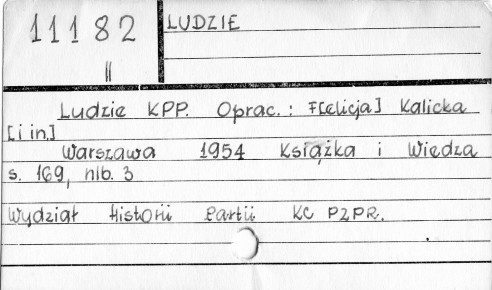 11182
II
LUDZIE
Ludzie KPP. Oprac.: F[elicja] Kalicka
[i in.]
Warszawa 1954 Książka i Wiedza
s. 169, nlb. 3
Wydział Historii Partii KC PZPR.